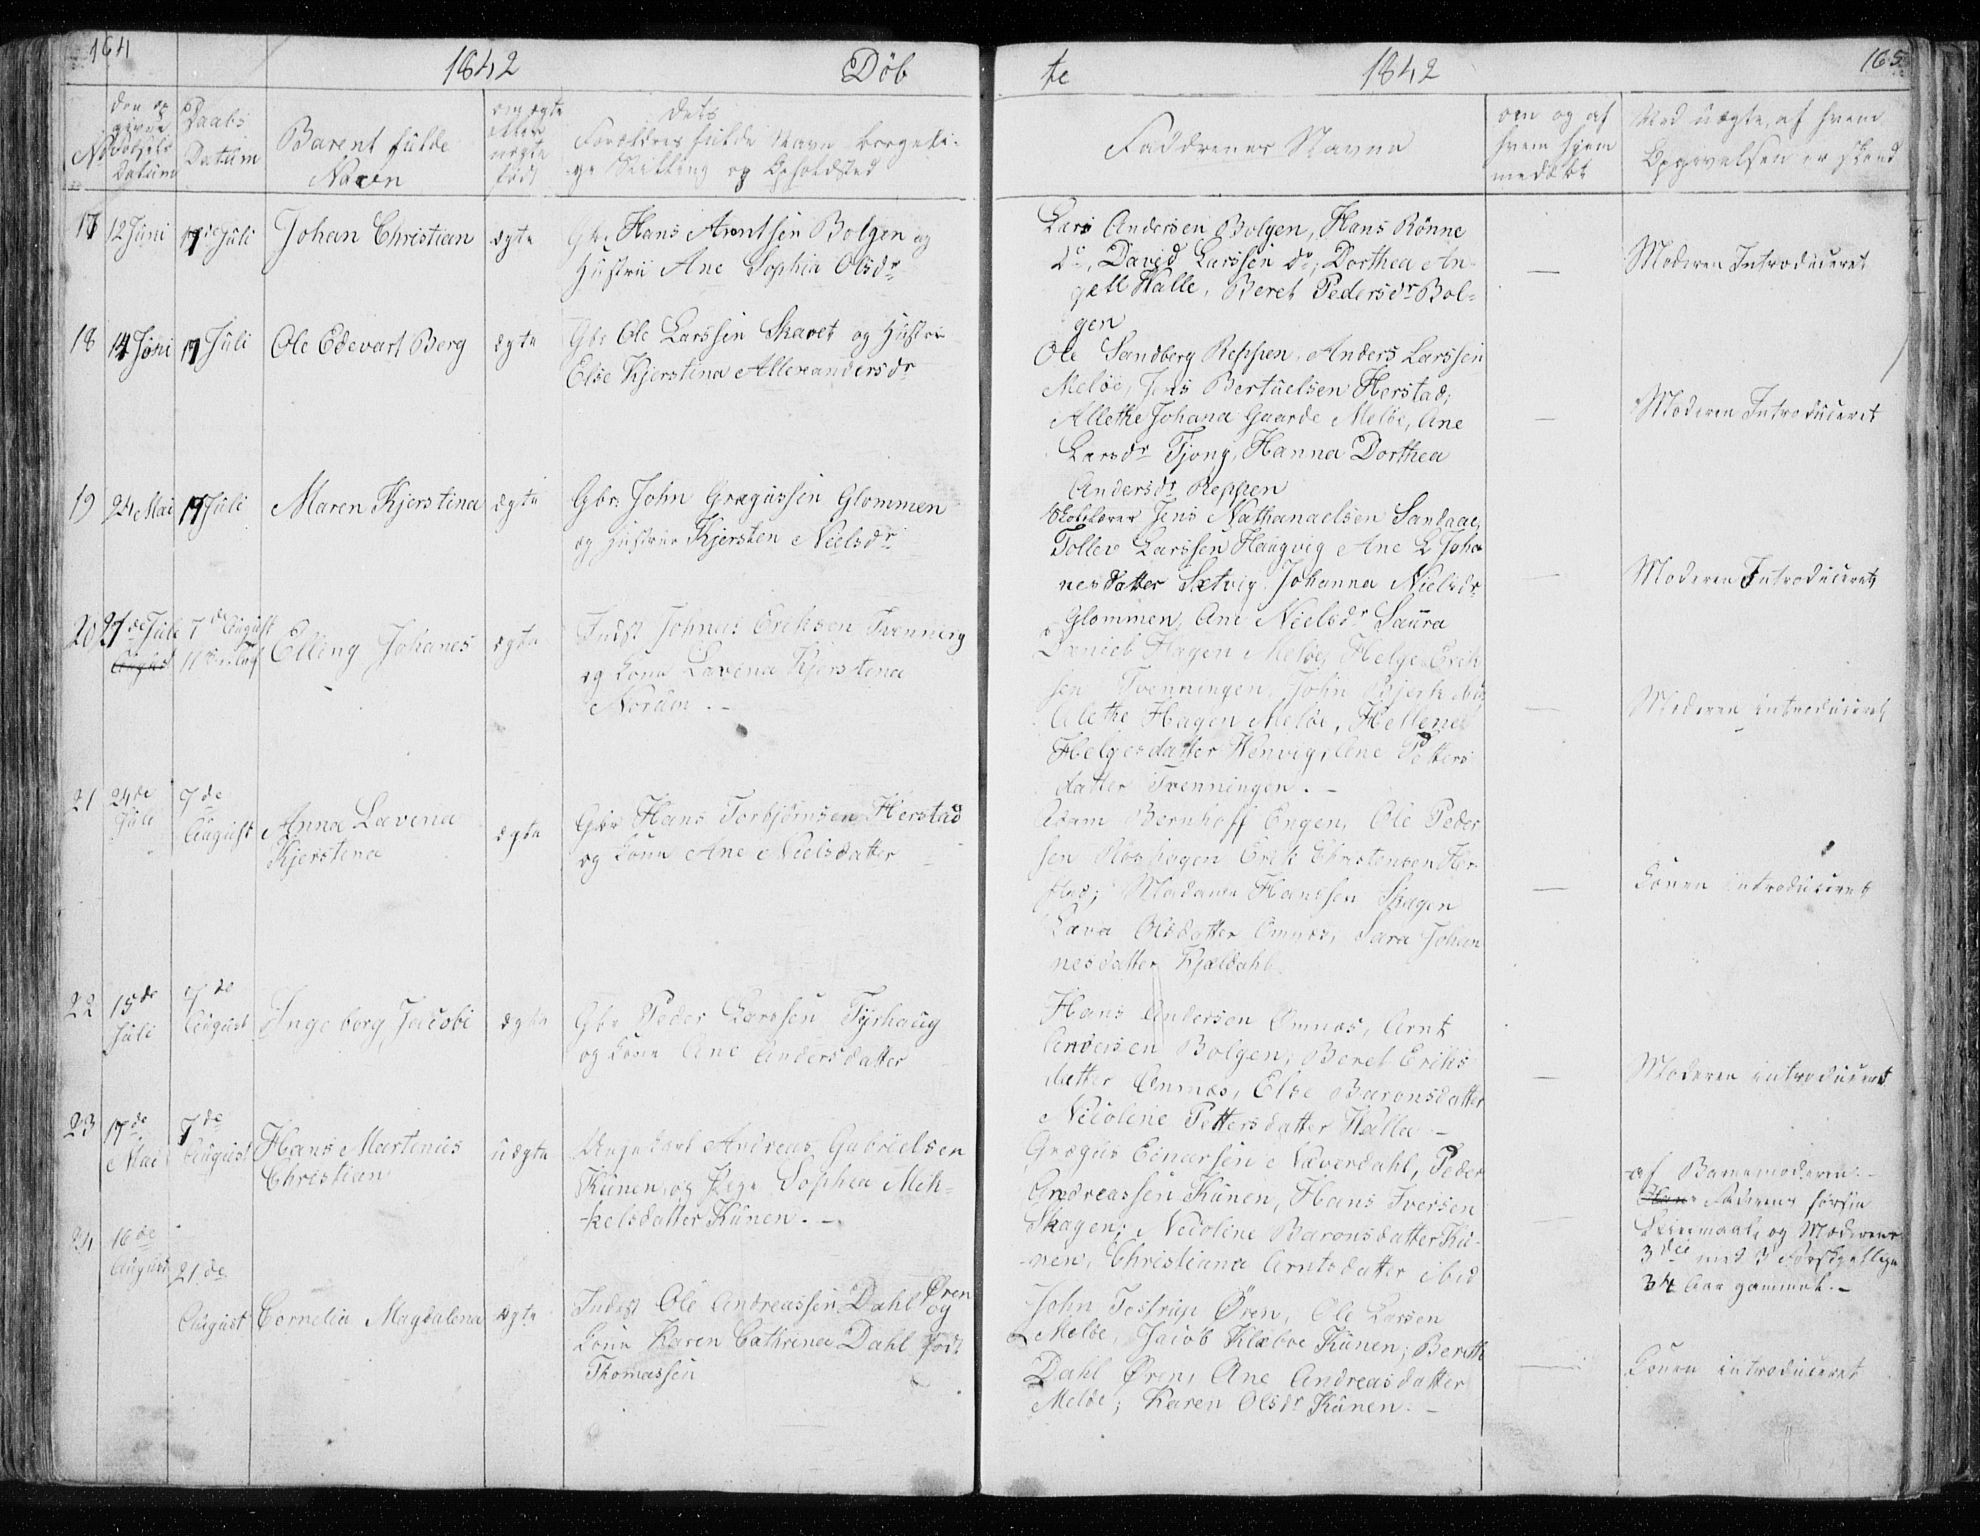 164
1842
Døb
te
1842
165
No
den op
givne
Fødsels
Datum
Daabs
Datum
Barent fulde
Navn
om ægte
eller
uægte
født
dets
Forældres fulde Navn borgeli-
ge Stilling og Opholdsted
Faddrenes Navne
om og af
hvem hjem
medøbt
Ved uægte, af hvem
Opgivelsen er skeed
17 12 Juni 17de Juli Johan Christian ægte Gbr. Hans Arntsen Bolgen og
Hustru Ane Sophia Olsdr
Lars Andersen Bolgen, Hans Rönne
do, David Larssen do, Dorthea An-
gell Halle, Beret Pedersdr Bol-
gen
— Moderen Introduceret
18 14 Juni 17 Juli Ole Edevart Berg ægte Gbr Ole Larssen Skavet og Hustru
Else Kjerstina Allexandersdr
Ole Sandberg Reppen, Anders Larssen
Meløe, Jens Bertuelsen Herstad,
Allethe Johana Gaarde Meløe, Ane
Larsdr Tjong, Hanna Dorthea
Andersdr Reppen
— Moderen Introduceret
19 24 Mai 17 Juli Maren Kjerstina ægte Gbr. John Grægussen Glommen
og Hustrue Kjersten Nielsdr
Skolelærer Jens Nathanaelsen Sandaae,
Tollev Larssen Haugvig Ane L Joha
nesdatter Sætvig, Johanna Nielsdr
Glommen, Ane Nielsdr Saura
— Moderen Introduceret
20 27de Juli 7de August Elling Johanes ægte Indst Johnas Eriksen Tvenning
og Kone Lavina Kjerstina
Norum. -
Daniel Hagen Meløe, Helge Erik
sen Tvenningen, John
Alethe Hagen Meløe, Hellene
Helgesdatter Wenvig, Ane Petters
datter Tvenningen. -
— Moderen introduceret
21 24de Juli 7de August Anna Lavina
Kjerstina
ægte Gbr Hans Torbjørnsen Herstad
og Kone Ane Nielsdatter
Adam Bernhoff Engen, Ole Peder
sen Erik Christensen Her-
stad; Madame Hanssen Skagen
Lava Olsdatter Omnes, Sara Johan
nesdatter Kjeldahl.
— Konen introduceret
22 15de Juli 7de August Ingeborg Jacobi ægte Gbr Peder Larssen Tyrhaug
og Kone Ane Andersdatter
Hans Andersen Omnæs, Arnt
Andersen Bolgen, Beret Eriks
datter Omnæs, Else Baronsdatter
Nicolene Pettersdatter Halla -
— Moderen introduceret
23 17de Mai 7de August Hans Martenus
Christian
uægte Ungekarl Andreas Gabrielsen
Kunen og Pige Sophia Mik-
kelsdatter Kunen. -
Grægus Einarsen Næverdahl, Peder
Andreassen Kunen, Hans Iversen
Skagen; Nicoline Baronsdatter Ku-
nen, Christiana Arntsdatter ibid
— af Barnemoderen. -
Faderens første
Leiermaal og Moderens
3die med 3 forskjellige
34 Aar gammel. -
24 16de August 21de
August Cornelia Magdalena ægte Indst Ole Andreassen Dahl Øren
og
Kone Karen Cathrina Dahl født
Thomassen
John Tostrup Øren, Ole Larsen
Meløe, Jacob Klæboe Kunen; Berith
Dahl Øren, Ane Andreasdatter
Meløe; Karen Olsdr Kunen. -
— Konen introduceret